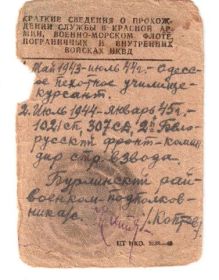 КРАТКИЕ СВЕДЕНИЯ О ПРОХОЖДЕНИИ
СЛУЖБЫ В КРАСНОЙ АР-
МИИ, ВОЕННО-МОРСКОМ ФЛОТЕ,
ПОГРАНИЧНЫХ И ВНУТРЕННИХ
ВОЙСКАХ НКВД
Май 1943-июль 44г.- Одесс-
кое пехотное училище
курсант.
2. Июль 1944-январь 45г.-
1021 сп 307 сд, 2й Бело-
русский фронт-коман
дир стр. взвода.
Бурлинский рай-
военком-подполков-
ника/с.